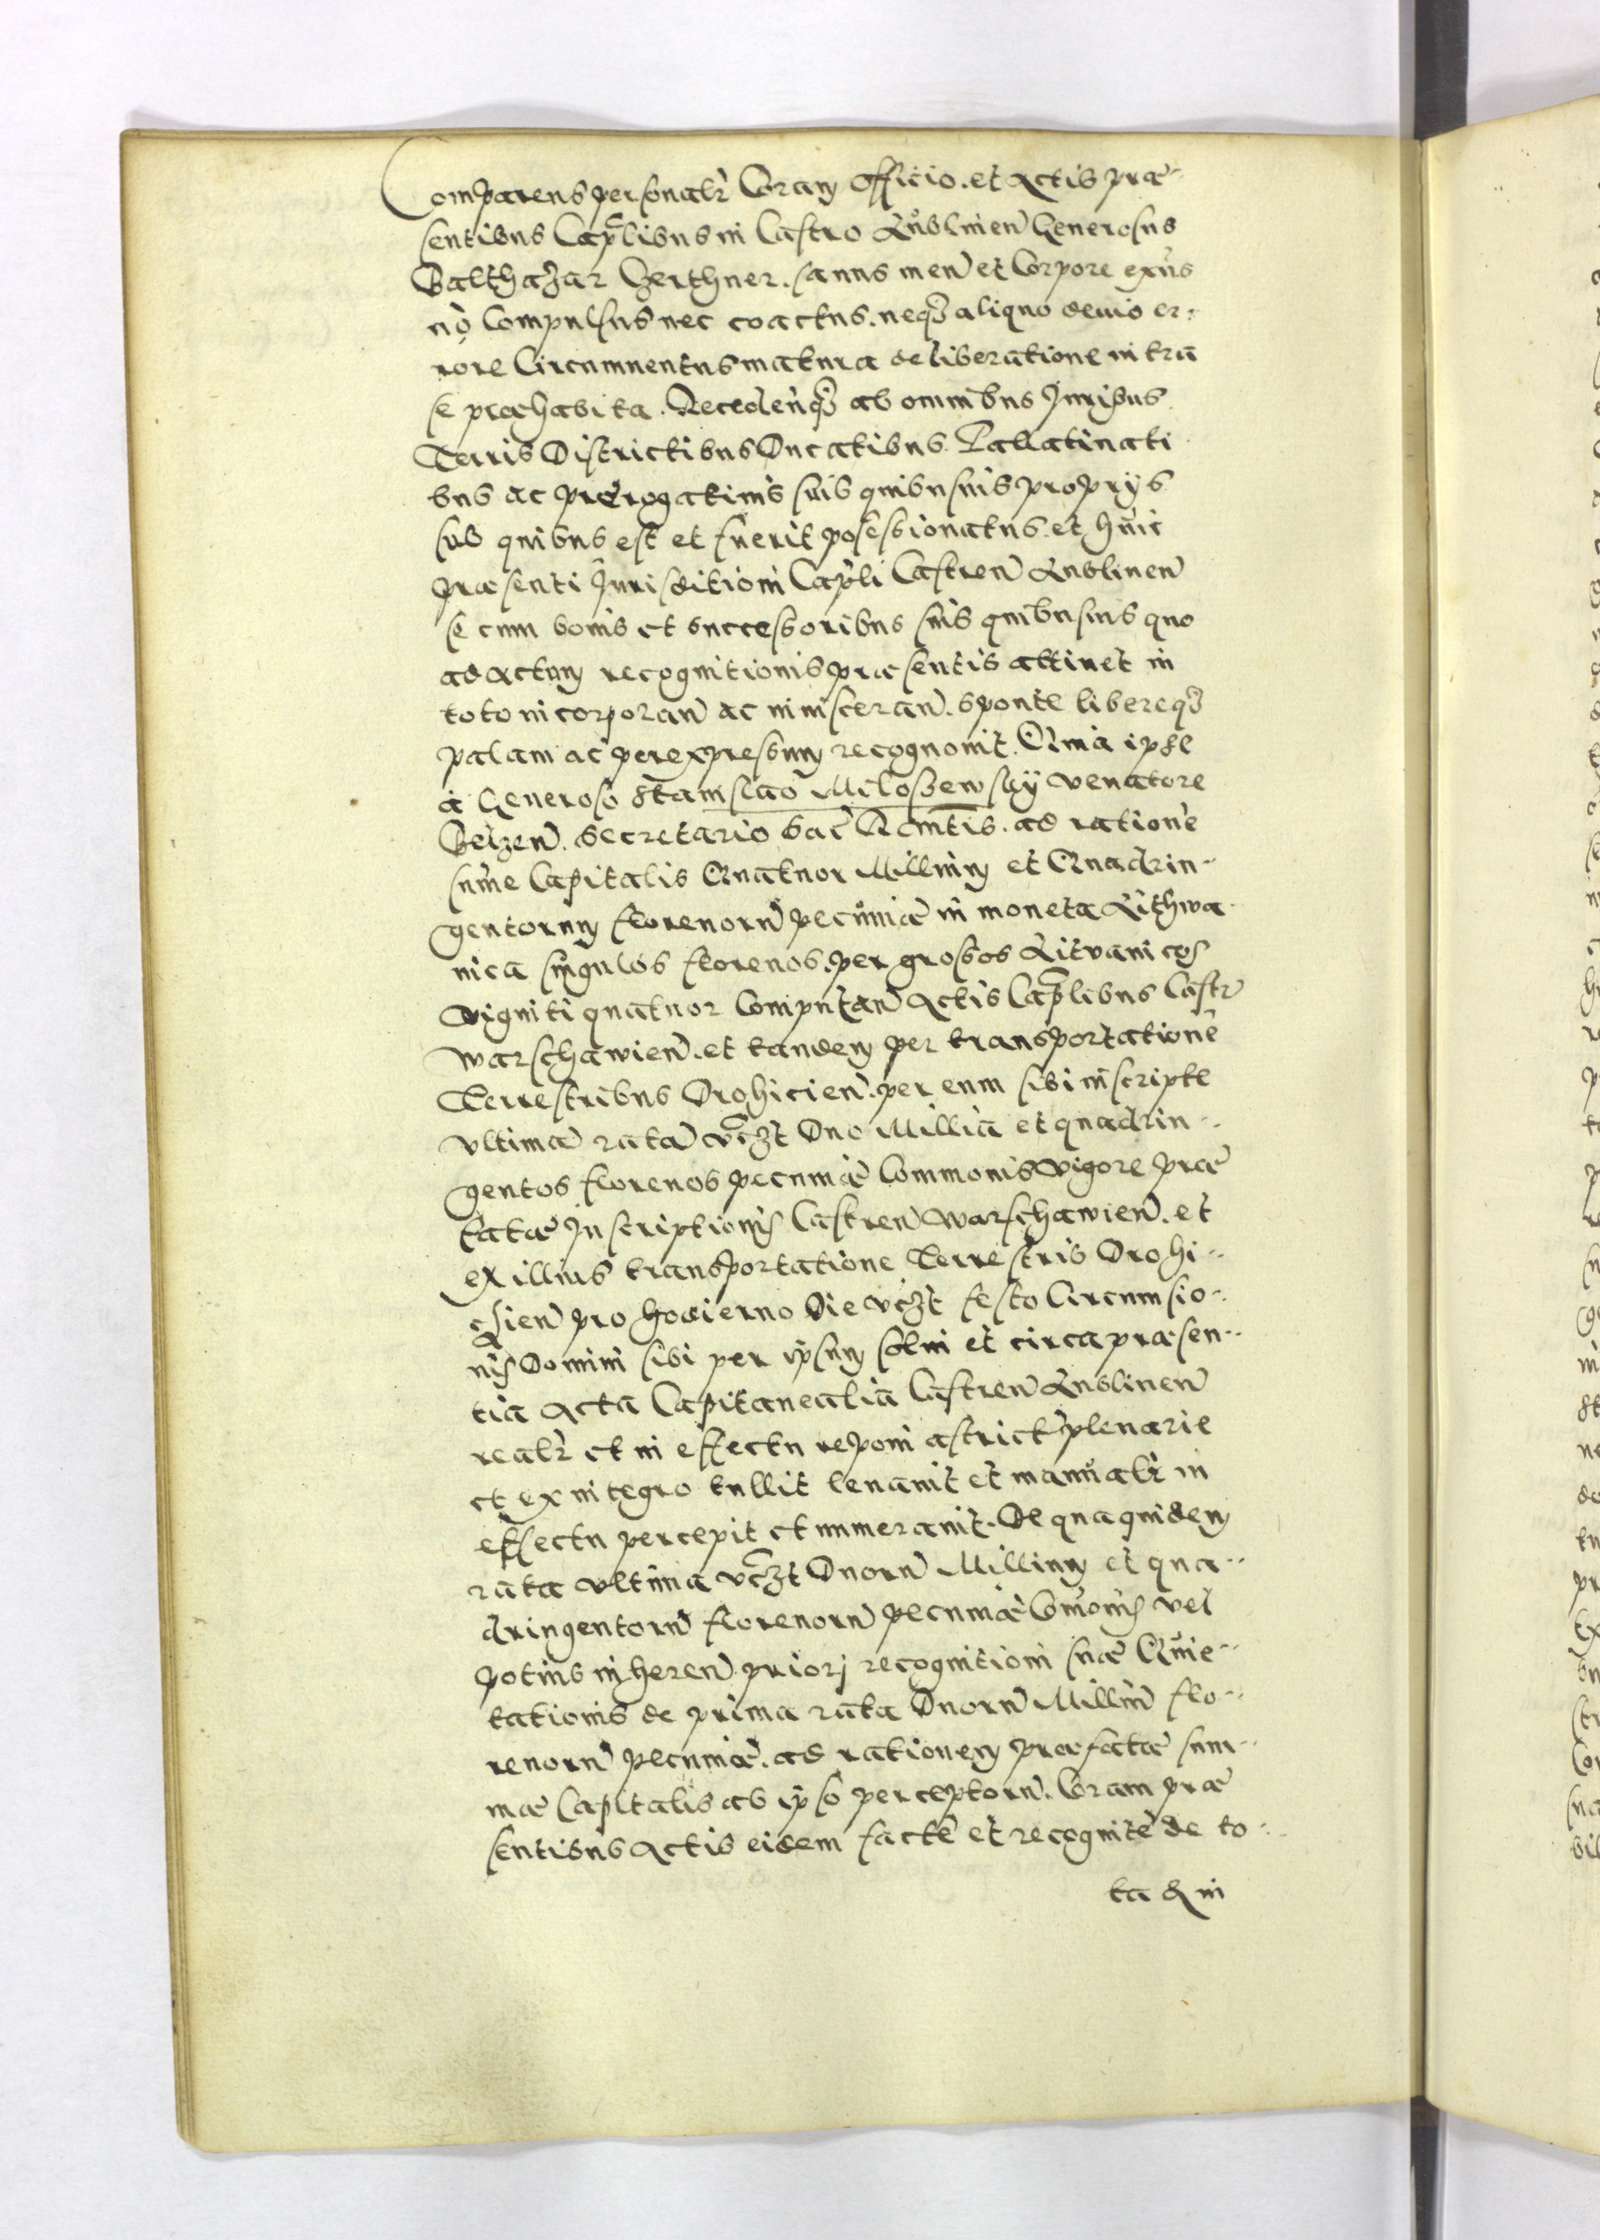 Comparens personalr Coram Officio. et Actis præ-
sentibus Capnlibus in Castro Lublinen Generosus
Balthazar Zerthner. sanus men et Corpore exns
no Compulsus nec coactus. neqz aliquo deuio er-
rore Circumuentus matura deliberatione intra
se præhabita. Recedenqz ab omnibus Juribus
Terris Districtibus Ducatibus Pallatinati
bus ac prærogatiuis suis quibusuis proprijs
sub quibus est et fuerit possessionatus. et huic
præsenti Jurisditioni Capli Castren Lublinen
se cum bonis et successoribus suis quibusuis quo
ad actum recognitionis præsentis attinet in
toto incorporan ac inuisceran. sponte libereqz
palam ac per expressum recognouit. Quia ipse
a Generoso Stanislao Miloszewsky Venatore
Belzen. Secretario Sac Rmtis. ad ratione
sume Capitalis Quatuor Millium et Quadrin-
gentorum florenoru pecuniæ in moneta Lithwa
nica singulos florenos. per grossos Litvanicos
Viginti quatuor Computan Actis Caplibus Castr
Warschawien. et tandem per transportatione
Terrestribus Drohicien. per eum sibi inscripte
vltima rata vczt Duo Millia et quadrin-
gentos florenos pecuniæ Communis Vigore præ
fatæ Inscriptionis Castren Warschawien. et
ex illius transportatione Terrestris Drohi-
czien pro hodierno Die vczt festo Circumsio-
nis Domini sibi per ipsum solui et circa præsen-
tia Acta Capitanealia Castren Lublinen
realr et in effectu reponi astrict plenarie
et ex integro tullit leuauit et manualr in
effectu percepit et numerauit. De qua quidem
rata vltima vczt Duoru Millium et qua-
dringentoru florenoru pecuniæ Comonis vel
potius inheren priori recognitioni suæ Quie-
tationis de prima rata Duoru Milliu flo-
renoru pecuniæ. ad rationem præfatæ sum-
mæ Capitalis ab ipso perceptoru. Coram præ
sentibus Actis eidem facte et recognite de to-
ta & in